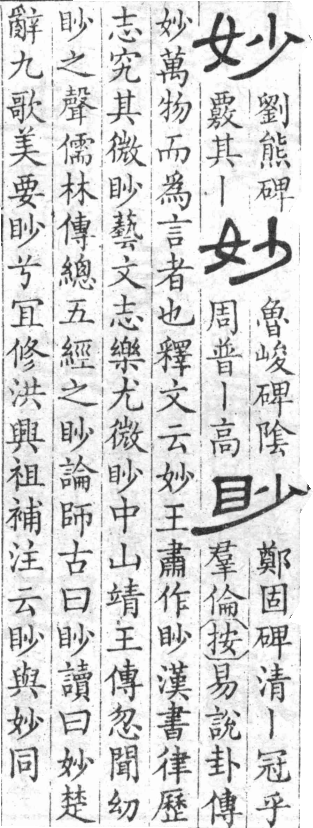 妙
劉熊碑
覈其丨
妙
魯峻碑陰
周普丨高
眇
鄭固碑清丨冠乎
羣倫按易說卦傳
妙萬物而為言者也釋文云妙王肅作眇漢書律歷
志究其微眇藝文志樂尤微眇中山靖王傳忽聞幼
眇之聲儒林傳總五經之眇論師古曰眇讀曰妙楚
辭九歌美要眇兮冝修洪興祖補注云眇與妙同